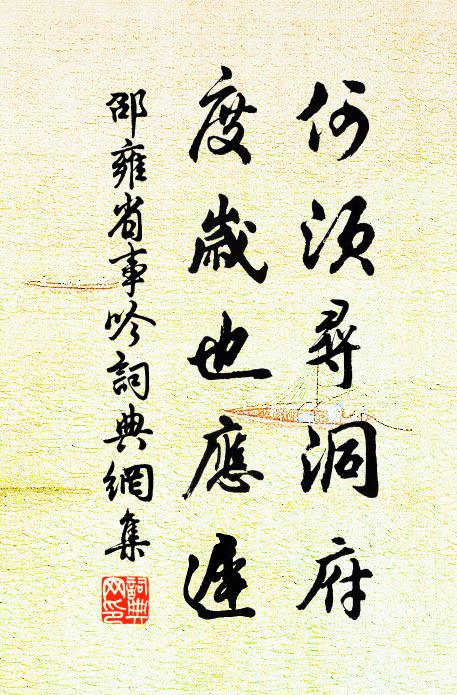 何須尋洞府
度歲也應遲
邵雍省事吟詞典網集
詞典
网印